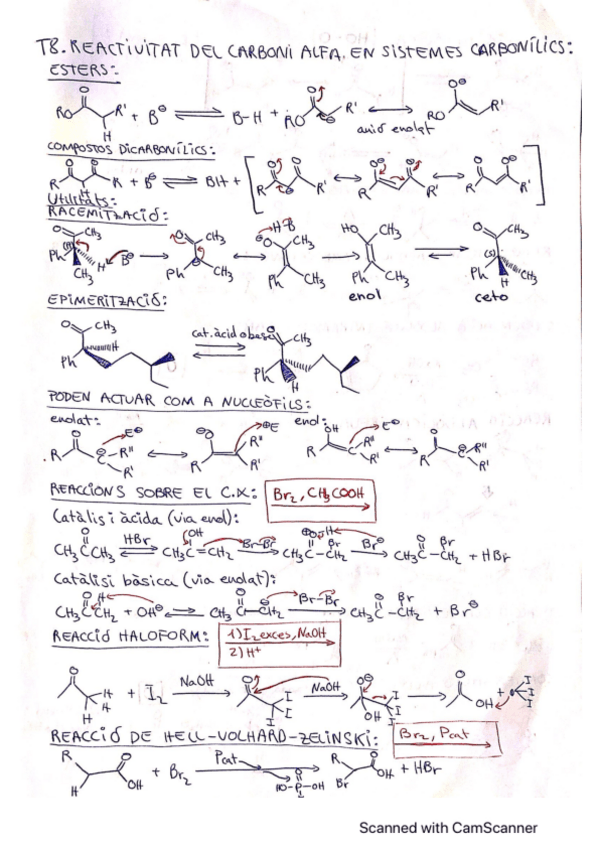 T8. REACTIVITAT DEL CARBONI ALFA. EN SISTEMES CARBONÍLICS:
ESTERS:
RO O R' H + B⊖ ⇌ B-H + RO O R' ⟷ RO O⊖ R'
anió enolat
COMPOSTOS DICARBONÍLICS:
R O O R + B⊖ ⇌ BH + [ R O O R' ⟷ R O⊖ O R' ⟷ R O O⊖ R' ]
Utilitats:
RACEMITZACIÓ:
O CH3 Ph H CH3 B⊖ → O CH3 Ph CH3 → ⊖O H-B CH3 Ph CH3 → HO CH3 Ph CH3 ⇌ O CH3 (S) Ph H CH3
enol ceto
EPIMERITZACIÓ:
O CH3 Ph H cat. àcid o base O CH3 Ph H
PODEN ACTUAR COM A NUCLEÒFILS:
enolat: enol:
R O C⊖ R" R' E⊕ ⟷ ⊖O R R" R' ⊕E R OH C R" R' E⊕ ⟷ R O C⊖ R" R'
REACCIONS SOBRE EL C.X.: Br2, CH3COOH
Catàlisi àcida (via enol):
CH3CCH3 O HBr ⇌ CH3C=CH2 OH Br-Br → CH3C-CH2 Br Br⊖ → CH3C-CH2 O Br + HBr
Catàlisi bàsica (via enolat):
CH3CCH2 O H + OH⊖ ⇌ CH3C-CH2 O Br-Br → CH3C-CH2 O Br + Br⊖
REACCIÓ HALOFORM: 1) I2 exces, NaOH
2) H+
O H H H + I2 NaOH → O I I I NaOH → O⊖ OH I I I → O OH + I I I
REACCIÓ DE HELL-VOLHARD-ZELINSKI: Br2, Pcat
R H O OH + Br2 Pcat → HO-P-OH O R Br O OH + HBr
Scanned with CamScanner